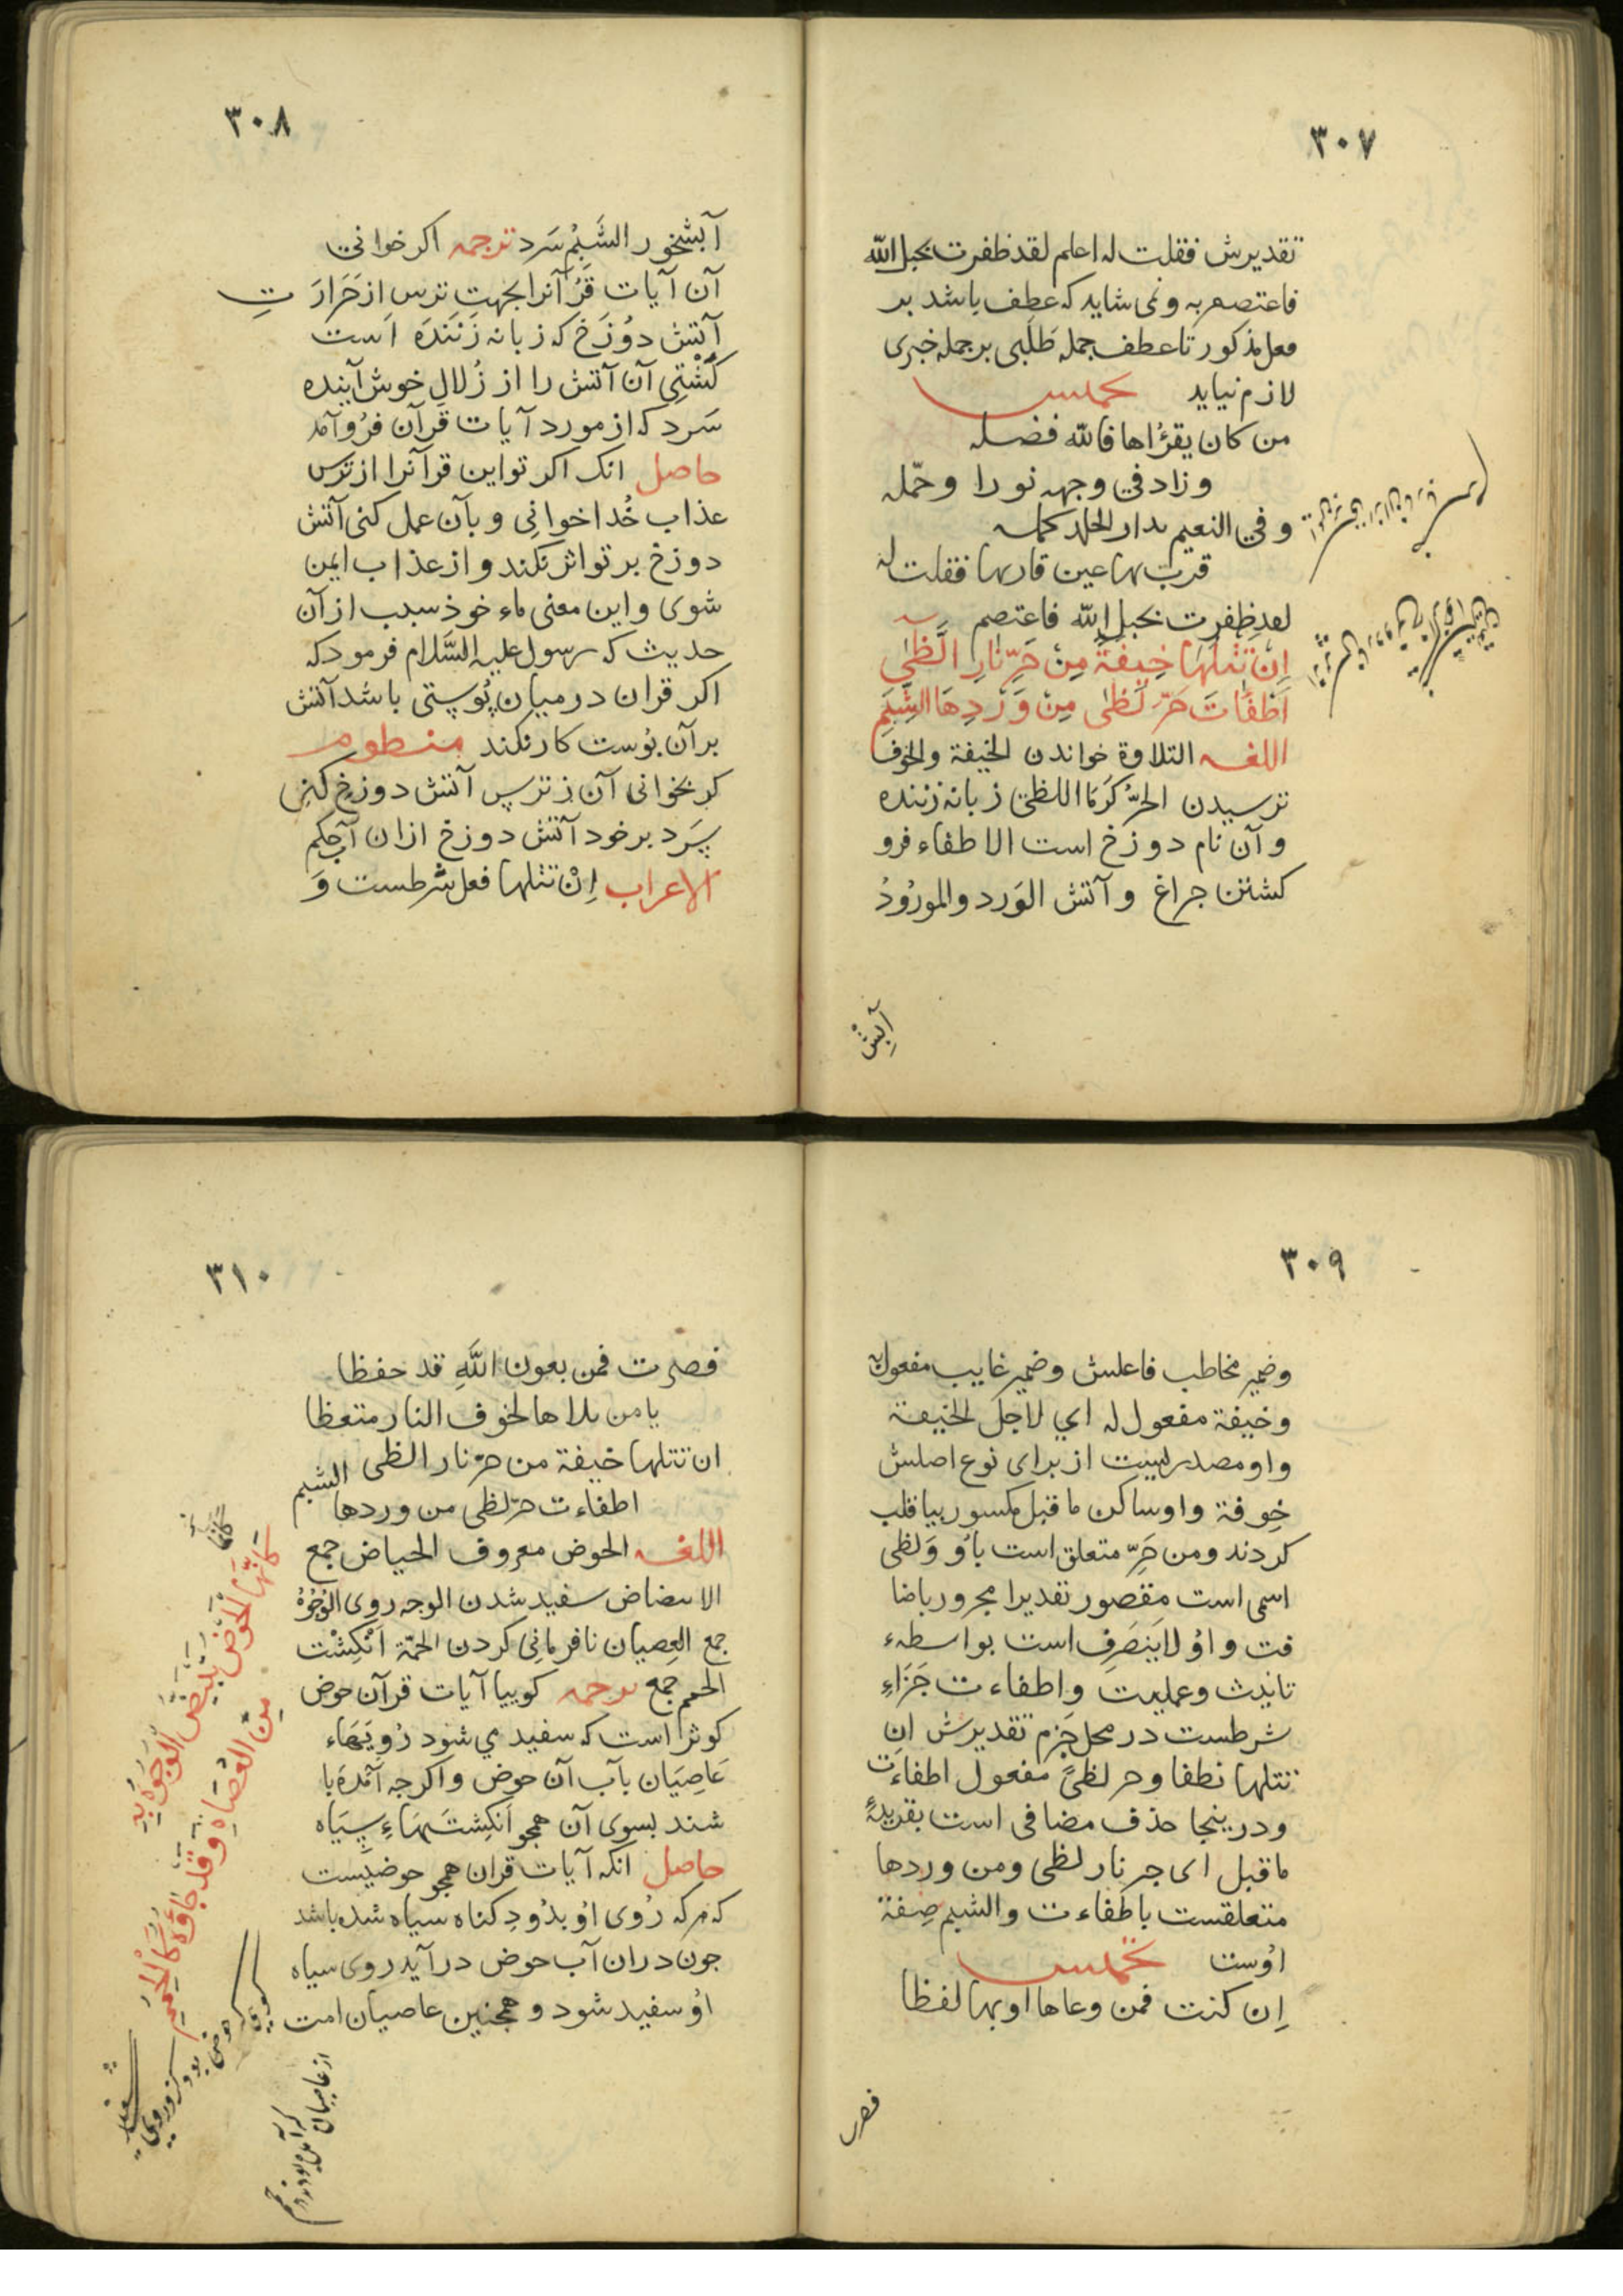 ٣٠٧
تقدیرش فقلت له اعلم لقد ظفرت بحبل الله
فاعتصم به و نمی شاید که عطف باشد بر
فعل مذکور تا عطف جمله طَلَبی بر جمله خبری
لازم نیاید تخمیس
من کان یقرؤاها فالله فضله
و زاد في وجهه نورا وجمّله
و في النعیم بدار الخلد کمله
قرت بها عین قاریها فقلت له
لقد ظفرت بحبل الله فاعتصم
اِنْ تَتْلُهَا خِیفَةً مِنْ حَرِّ نَارِ الَّظٰی
اَطْفَاْتَ حَرَّ لَظٰی مِنْ وَرْدِهَا الشَّبِمِ
اللغه التلاوة خواندن الخیفة والخوف
ترسیدن الحَرُّ کَرما اللظی زبانه زننده
و آن نام دوزخ است الاطفاء فرو
کشتن چراغ و آتش الوَرد والمورُودُ
آبش
٣٠٨
آبشخور الشَبِمُ سَرد ترجمه اکر خوانی
آن آیات قُرْآنرا بجهتِ ترس از حَرَارَتِ
آتش دوُزَخ که زبانه زَنَنْدَه اَست
کُشْتِی آن آتش را از زُلالِ خوش آینده
سَرد که از مورد آیات قرآن فرُو آمد
حاصل انک اکر تو این قرآنرا از ترس
عذاب خُدا خوانِی و بآن عمل کنی آتش
دوزخ بر تو اثر نکند و از عذاب ایمن
شوی و این معنی ماءخوذ سبب از آن
حدیث که رسول علیه السَّلام فرمود که
اکر قران در میان پُوستی باشد آتش
بر آن پوست کار نکند منظوم
کر بخوانی آن ز ترس آتش دوزخ کنی
سَرد بر خود آتش دوزخ ازان آب حکم
الاعراب اِنْ تتلها فعل شرطست وَ
٣٠٩
وضمیر مخاطب فاعلش وضمیر غایب مفعول به
و خیفة مفعول له اي لاجل الخیفة
و او مصدریست از برای نوع اصلش
خِوفة واو ساکن ما قبل مکسور بیا قلب
کردند ومن حَرِّ متعلق است باُو وَلظی
اسمی است مقصور تقدیرا مجرور باضا
فت و اوُ لایَنصَرِف است بواسطهء
تانیث وعلمیت و اطفاءت جَزَاءِ
شرطست در محل جَزم تقدیرش ان
تتلها تطفا وحر لظیً مفعول اطفاءَت
و درینجا حذف مضافی است بقرینهءِ
ما قبل ای حر نار لظی و من وردها
متعلقست باطفاءت والشبم صِفة
اوُست تخمیس
اِن کنت فمن وعاها او بها لفظا
فصر
٣١٠
فصرت فمن بعون اللهِ قد حفظا
یا من تلاها لخوف النار متعظا
ان تتلها خیفة من حرّ نار الظی
اطفاءت حرّ لظی من وردها الشبم
اللغه الحوض معروف الحیاض جمع
الابیضاض سفید شدن الوجه روی الوُجُوُهُ
جمع العِصیان نافرمانِی کردن الحمّة اَنْکِشْت
الحمم جمع ترجمه کوییا آیات قرآن حوض
کوثر است که سفید مي شود رُویَهَاء
عَاصِیَان بآب آن حوض و اکر چه آمَدَه با
شند بسوی آن همچو اَنکِشتَهَاءِ سِیَاه
حاصل انکه آیات قران همچو حوضیست
که هر که رُوی اوُ بدُودِ کناه سیاه شده باشد
چون دران آب حوض در آید روی سیاه
اوُ سفید شود و همچنین عاصیان امت
کَاَنَّهَا الْحَوْضُ تَبْیَضُّ الْوُجُوهُ بِهِ
مِنَ الْعُصَاةِ وَقَدْ جَاؤُهُ کَالْحُمَمِ